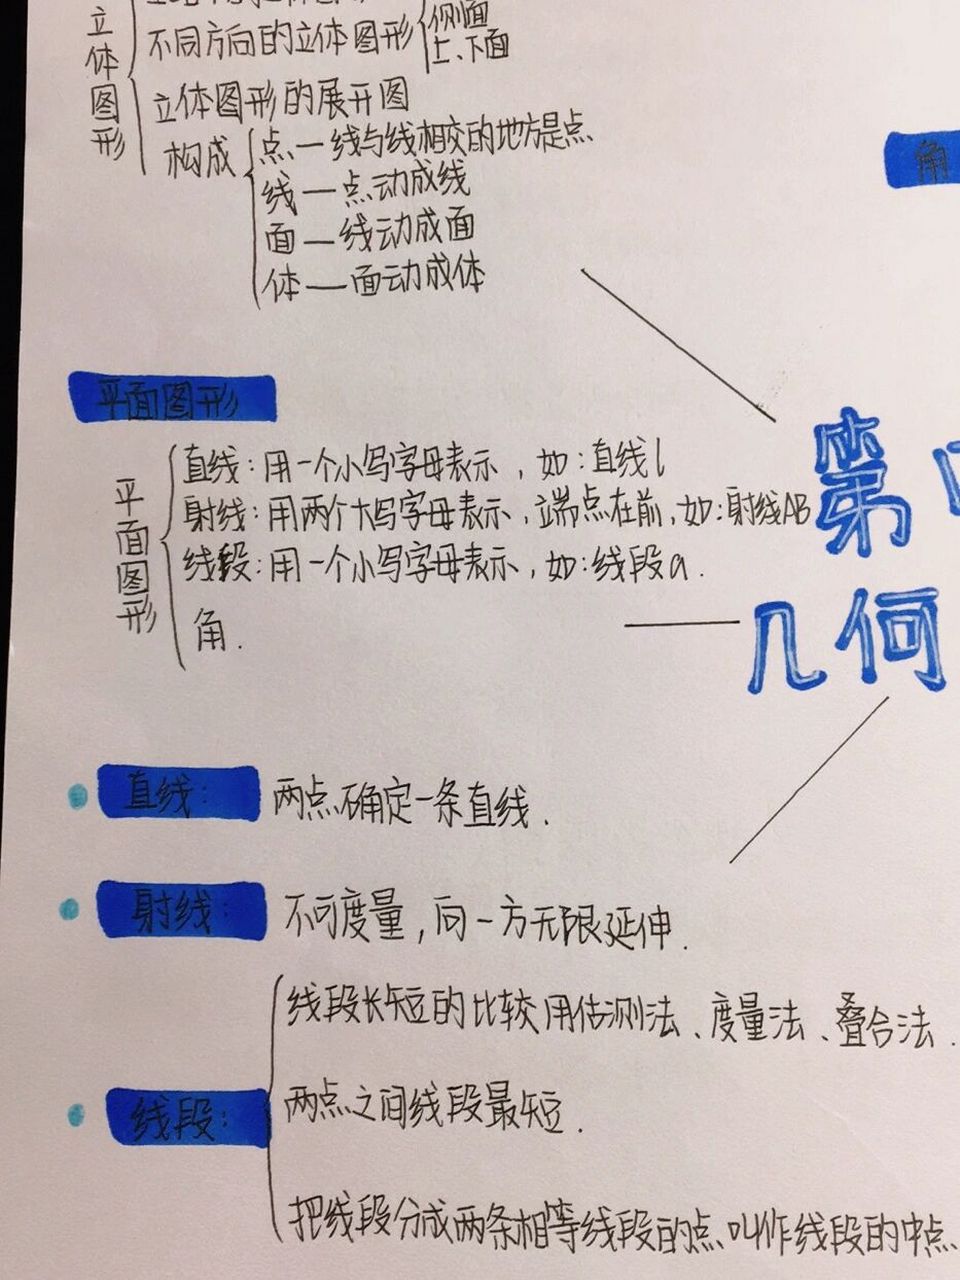 立体图形
不同方向的立体图形
侧面
上、下面
立体图形的展开图
构成
点—线与线相交的地方是点
线—点动成线
面—线动成面
体—面动成体
角
平面图形
平面图形
直线:用一个小写字母表示,如:直线l
射线:用两个大写字母表示,端点在前,如:射线AB
线段:用一个小写字母表示,如:线段a.
角.
第
几何
直线:
两点确定一条直线.
射线:
不可度量,向一方无限延伸.
线段:
线段长短的比较用估测法、度量法、叠合法.
两点之间线段最短.
把线段分成两条相等线段的点、叫作线段的中点、